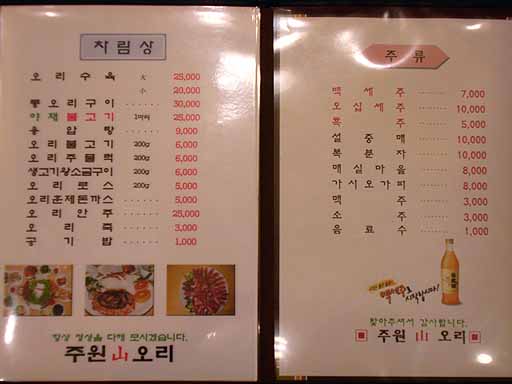 차림상
오리수육 大 25,000
小 20,000
통오리구이 ...... 30,000
야채불고기 1마리 25,000
용압탕 ...... 9,000
오리불고기 200g 6,000
오리주물럭 200g 6,000
생고기왕소금구이 200g 6,000
오리로스 200g 5,000
오리훈제돈까스 ...... 5,000
오리안주 ...... 25,000
오리죽 ...... 3,000
공기밥 ...... 1,000
항상 정성을 다해 모시겠습니다.
주원 山 오리
주류
백세주 ...... 7,000
오십세주 ...... 10,000
흑주 ...... 5,000
설중매 ...... 10,000
복분자 ...... 10,000
매실마을 ...... 8,000
가시오가피 ...... 8,000
맥주 ...... 3,000
소주 ...... 3,000
음료수 ...... 1,000
백세주로
시작합시다!
찾아주셔서 감사합니다.
주원 山 오리